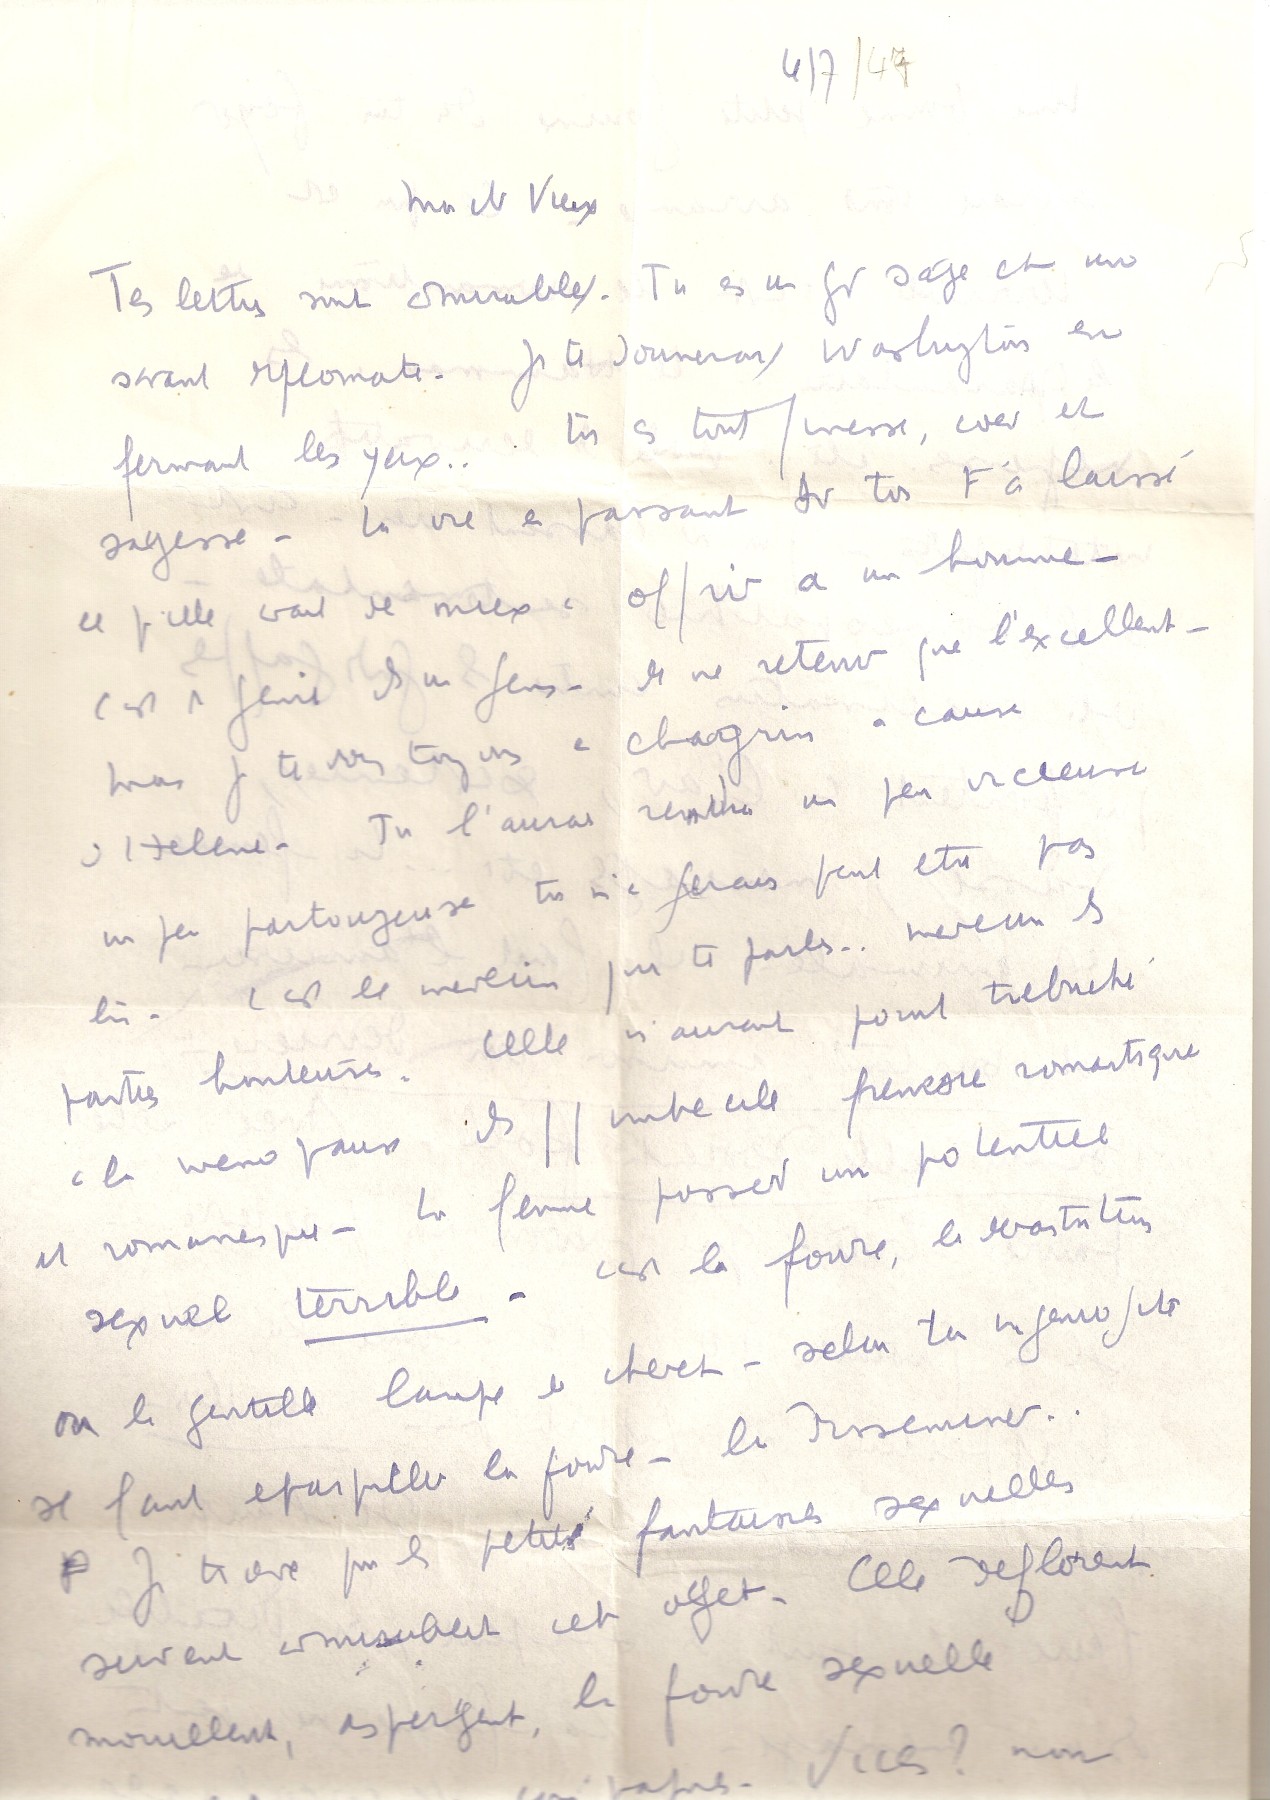 4/7/47
Mon Vieux
Tes lettres sont admirables. Tu es un sage et un
savant diplomate. Je te donnerais Washington en
fermant les yeux.. tu es tout finesse, coeur et
sagesse - La vie en passant toi t'a laissé
ce qu'elle avait de mieux à offrir à un homme -
C'est le génie des un gens - de ne retenir que l'excellent -
mais je te vois toujours chagrin à cause
d'Helene - Tu l'aurais rendu un peu vicieuse
un peu partouzeuse tu n'en serais peut etre pas
là - C'est le medecin qui te parle.. medecin des
parties honteuses. Celle n'aurait point trebuché
à la menopause imbecile frenesie romantique
et romanesque - La femme possede un potentiel
sexuel terrible - C'est la foudre, la devastation
ou la gentille lampe de chevet - selon ton ingeniosité
Il faut eparpiller la foudre - la disseminer..
Je trouve que les petites fantaisies sexuelles
servent cet objet - Elle deflorent
morcellent, aspergent, la foudre sexuelle
Vices? non